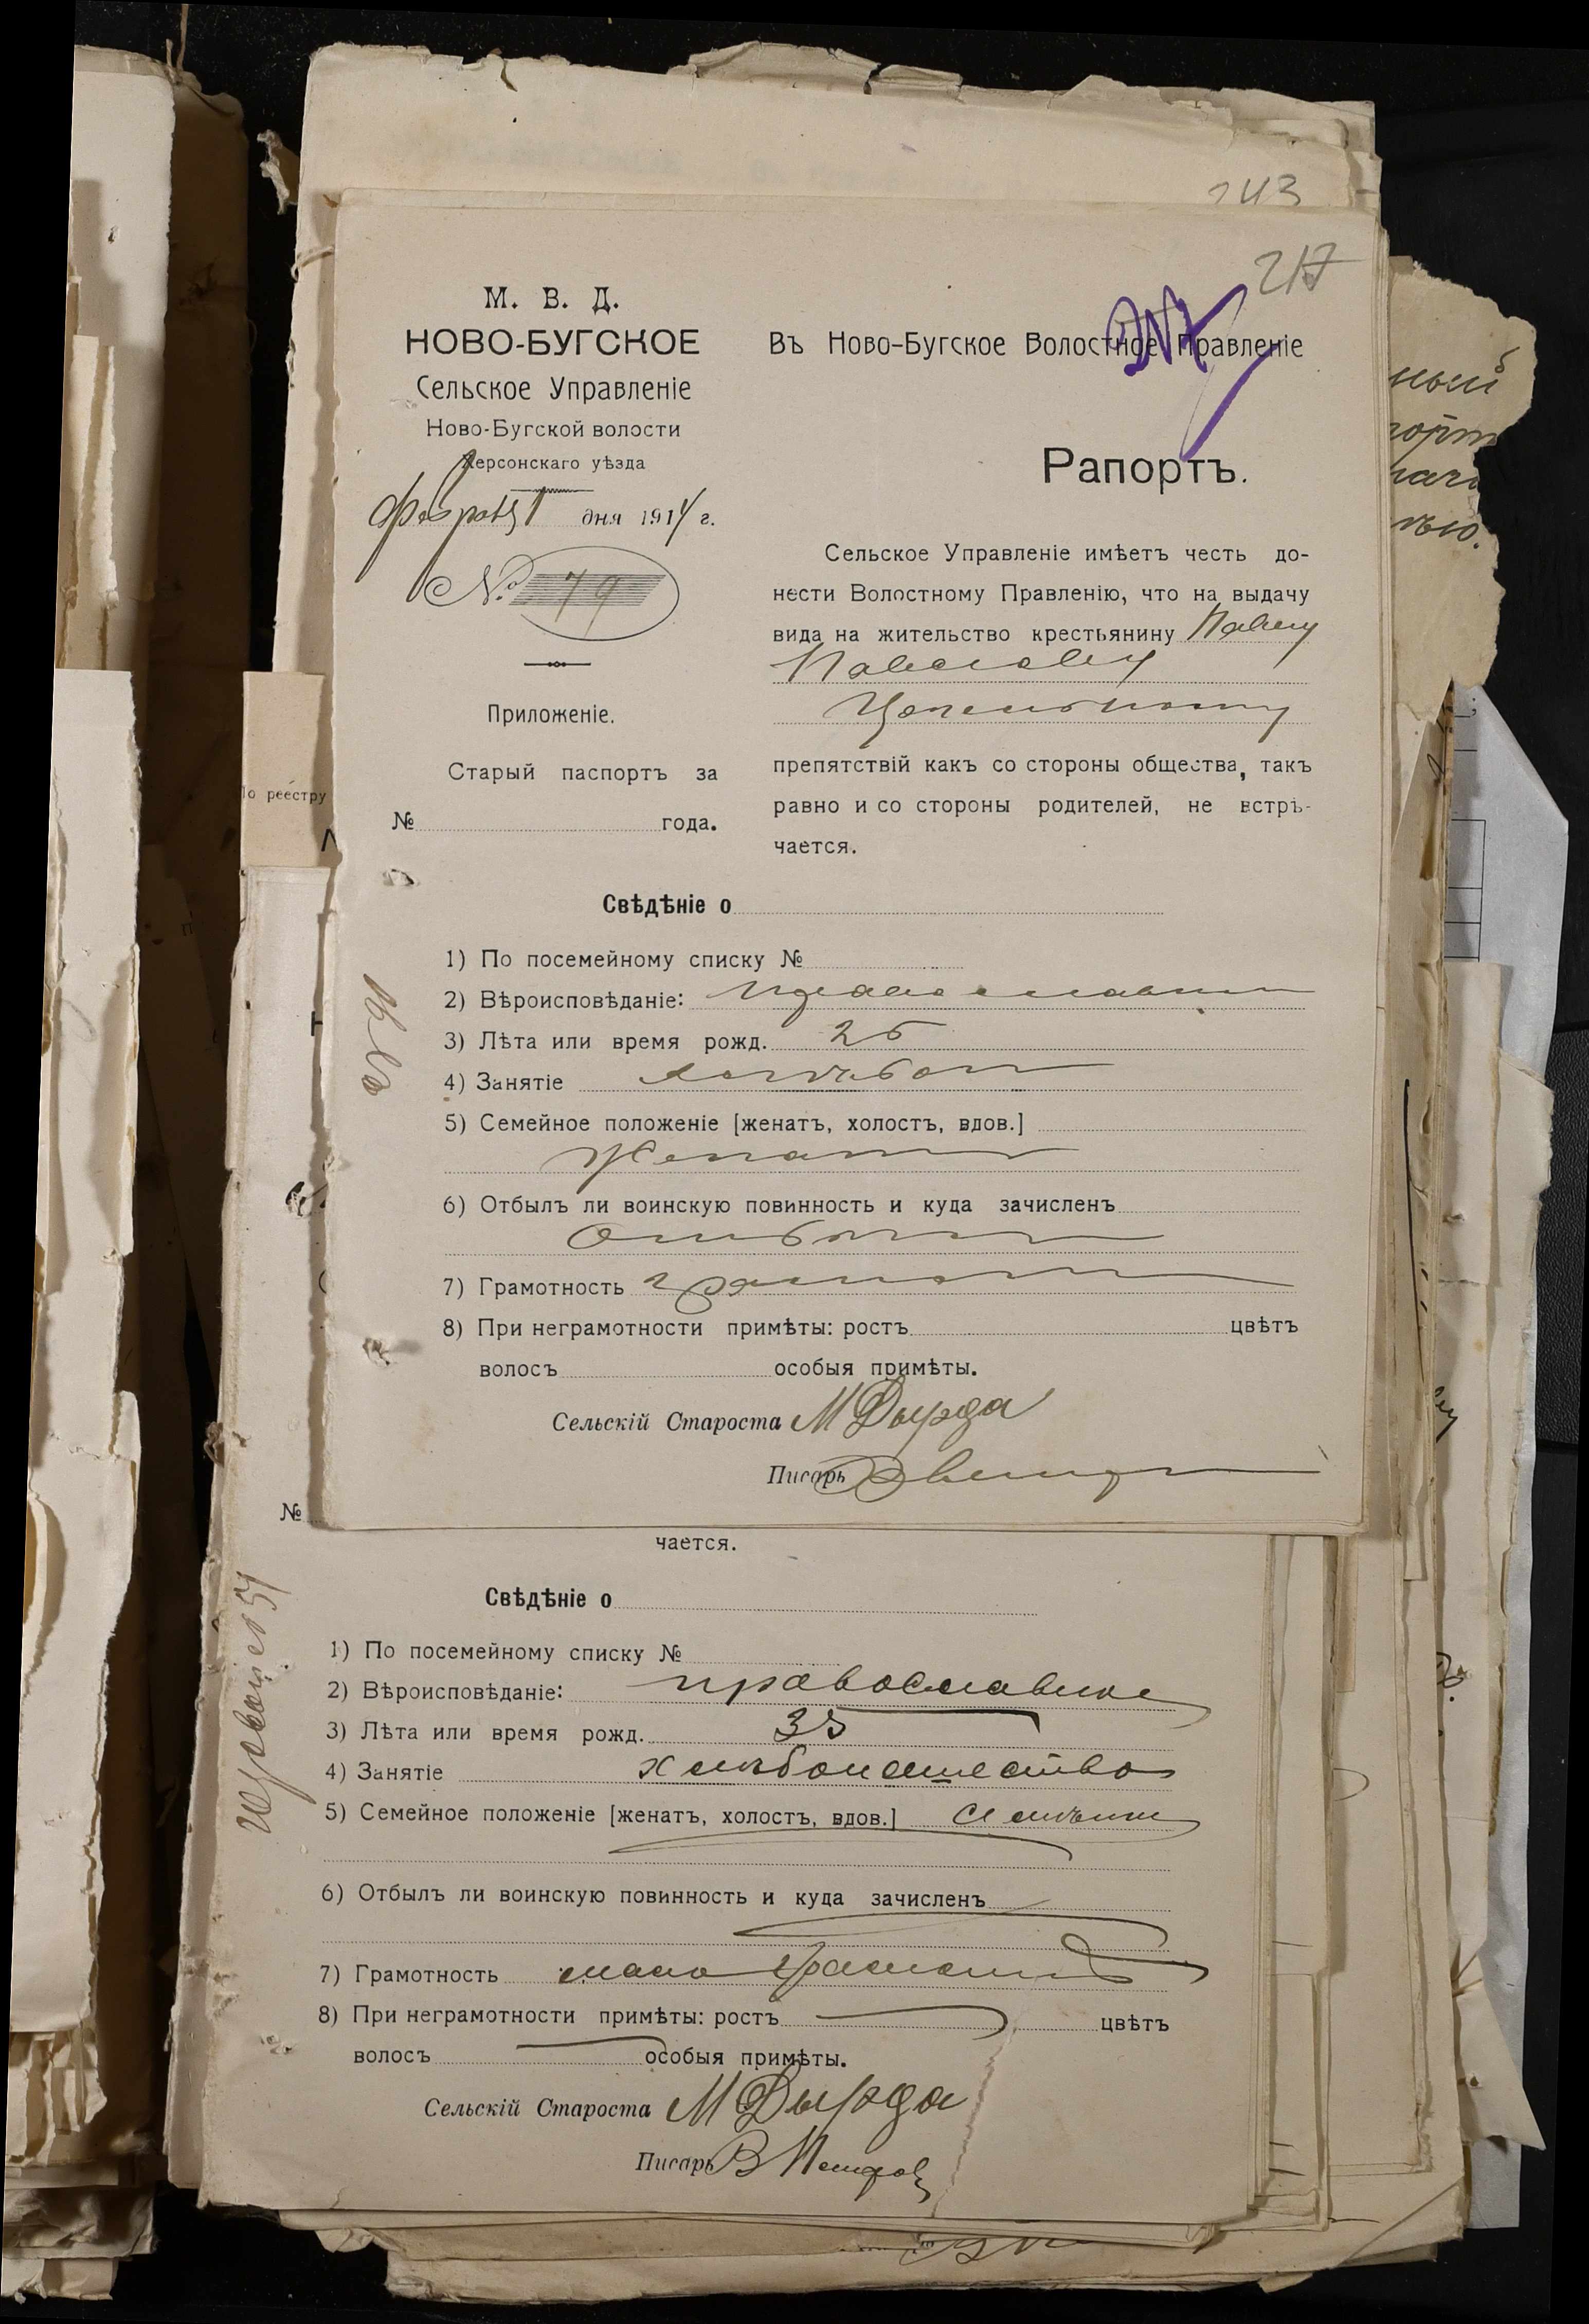 243
217
М. В. Д.
НОВО-БУГСКОЕ
Сельское Управленіе
Ново-Бугской волости
Херсонскаго уѣзда
дня 1914 г.
№ 79
Приложеніе.
Старый паспортъ за
№ года.
Въ Ново-Бугское Волостное Правленіе
Рапортъ.
Сельское Управленіе имѣетъ честь до-
нести Волостному Правленію, что на выдачу
вида на жительство крестьянину Павлу
Павлову
препятствій какъ со стороны общества, такъ
равно и со стороны родителей, не встрѣ-
чается.
Свѣдѣніе о
1) По посемейному списку №
2) Вѣроисповѣданіе: православн
3) Лѣта или время рожд. 25
4) Занятіе
5) Семейное положеніе [женатъ, холостъ, вдов.]
Женатъ
6) Отбылъ ли воинскую повинность и куда зачисленъ
Отбылъ
7) Грамотность
8) При неграмотности примѣты: ростъ цвѣтъ
волосъ особыя примѣты.
Сельскій Староста М Дырда
Писарь
По реестру
№
чается.
Свѣдѣніе о
1) По посемейному списку №
2) Вѣроисповѣданіе: православное
3) Лѣта или время рожд. 35
4) Занятіе хлѣбопашество
5) Семейное положеніе [женатъ, холостъ, вдов.]
6) Отбылъ ли воинскую повинность и куда зачисленъ
7) Грамотность мало грамотный
8) При неграмотности примѣты: ростъ цвѣтъ
волосъ особыя примѣты.
Сельскій Староста М Дырда
Писарь В Петров